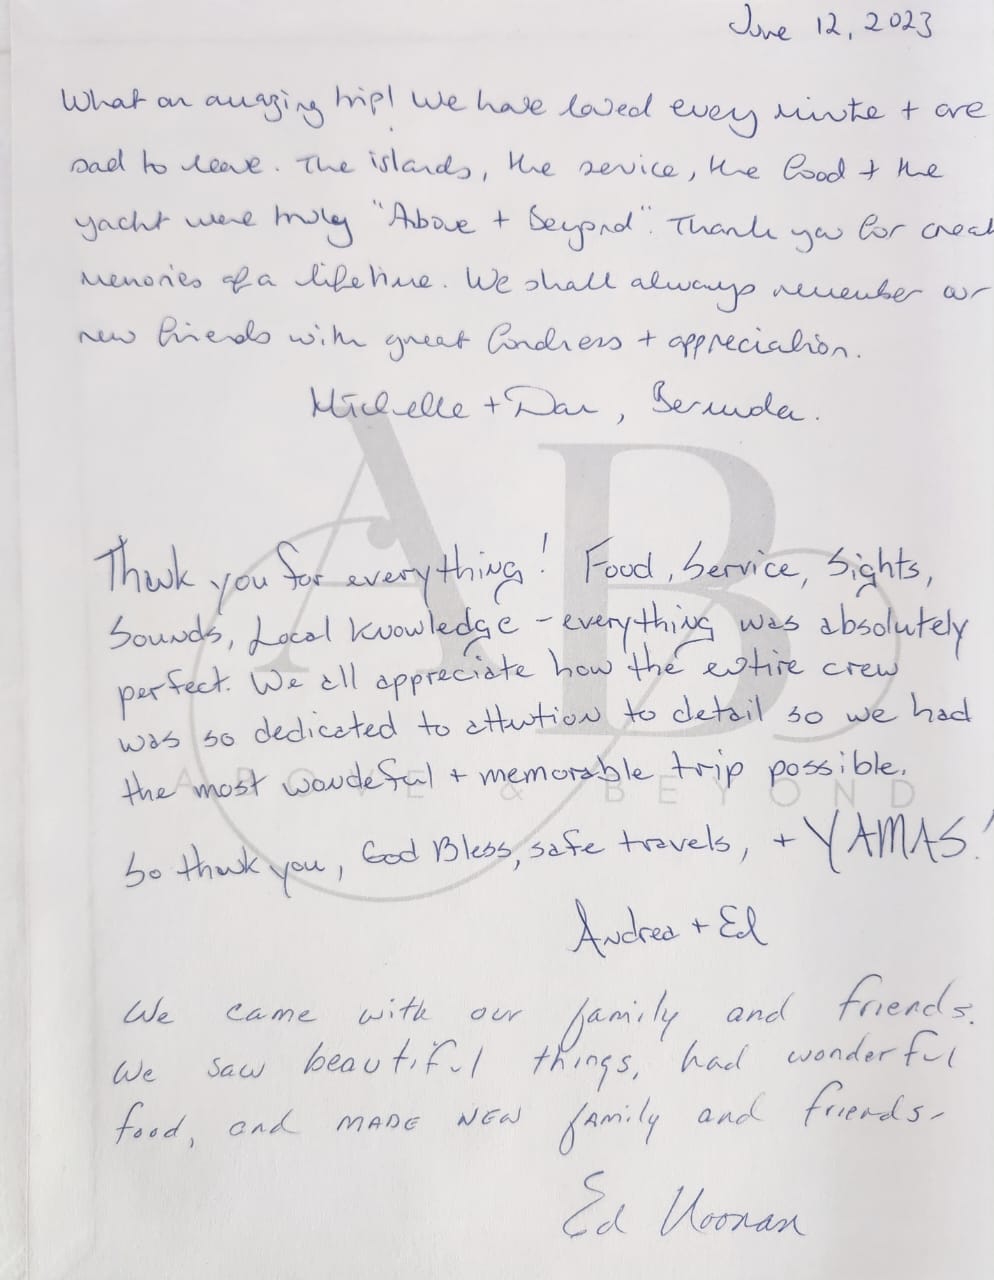 June 12, 2023
What an amazing trip! We have loved every minute + are
sad to leave. The islands, the service, the food + the
yacht were truly "Above + Beyond". Thank you for creat
memories of a lifetime. We shall always remember our
new friends with great fondness + appreciation.
Michelle + Dan, Bermuda.
AB
Thank you for everything! Food, Service, Sights,
Sounds, Local Knowledge - everything was absolutely
perfect. We all appreciate how the entire crew
was so dedicated to attention to detail so we had
the most wonderful + memorable trip possible.
ABOVE & BEYOND
So thank you, God Bless, safe travels, + YAMAS!
Andrea + Ed
We came with our family and friends.
We saw beautiful things, had wonderful
food, and MADE NEW family and friends.
Ed Noonan